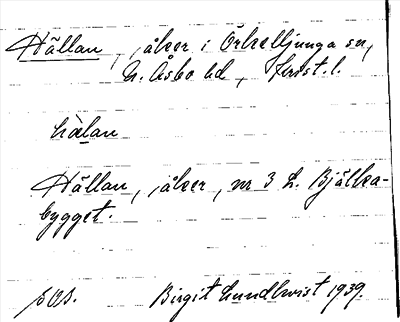 Hällan, åker i Örkelljunga sn,
N. Åsbo hd, Krist. l.
hàlan
Hällan, åker, nr 3 L. Bjälka-
bygget.
Birgit Lundkvist 1939.